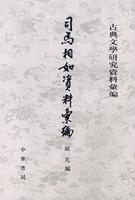 古典文學研究資料彙編
司馬相如資料彙編
踪凡編
中華書局